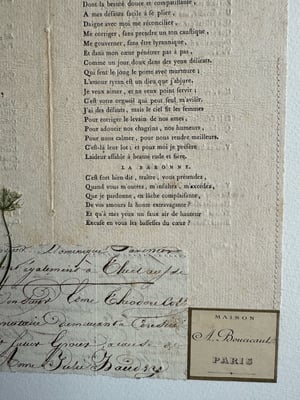 Dont la beauté douce et compatissante,
A mes défauts facile à se plier,
Daigne avec moi me réconcilier,
Me corriger, sans prendre un ton caustique,
Me gouverner, sans être tyrannique,
Et dans mon cœur pénétrer pas à pas,
Comme un jour doux dans des yeux délicats.
Qui sent le joug le porte avec murmure;
L'amour tyran est un dieu que j'abjure.
Je veux aimer, et ne veux point servir;
C'est votre orgueil qui peut seul m'avilir.
J'ai des défauts; mais le ciel fit les femmes
Pour corriger le levain de nos ames,
Pour adoucir nos chagrins, nos humeurs,
Pour nous calmer, pour nous rendre meilleurs.
C'est là leur lot; et pour moi je préfère
Laideur affable à beauté rude et fière.
LA BARONNE.
C'est fort bien dit, traître, vous prétendez,
Quand vous m'outrez, m'insultez, m'excédez,
Que je pardonne, en lâche complaisante,
De vos amours la honte extravagante?
Et qu'à mes yeux un faux air de hauteur
Excuse en vous les bassesses du cœur?
Dominique
également à
Théodore
notaire
Julie
MAISON
A. Boucicaut
PARIS